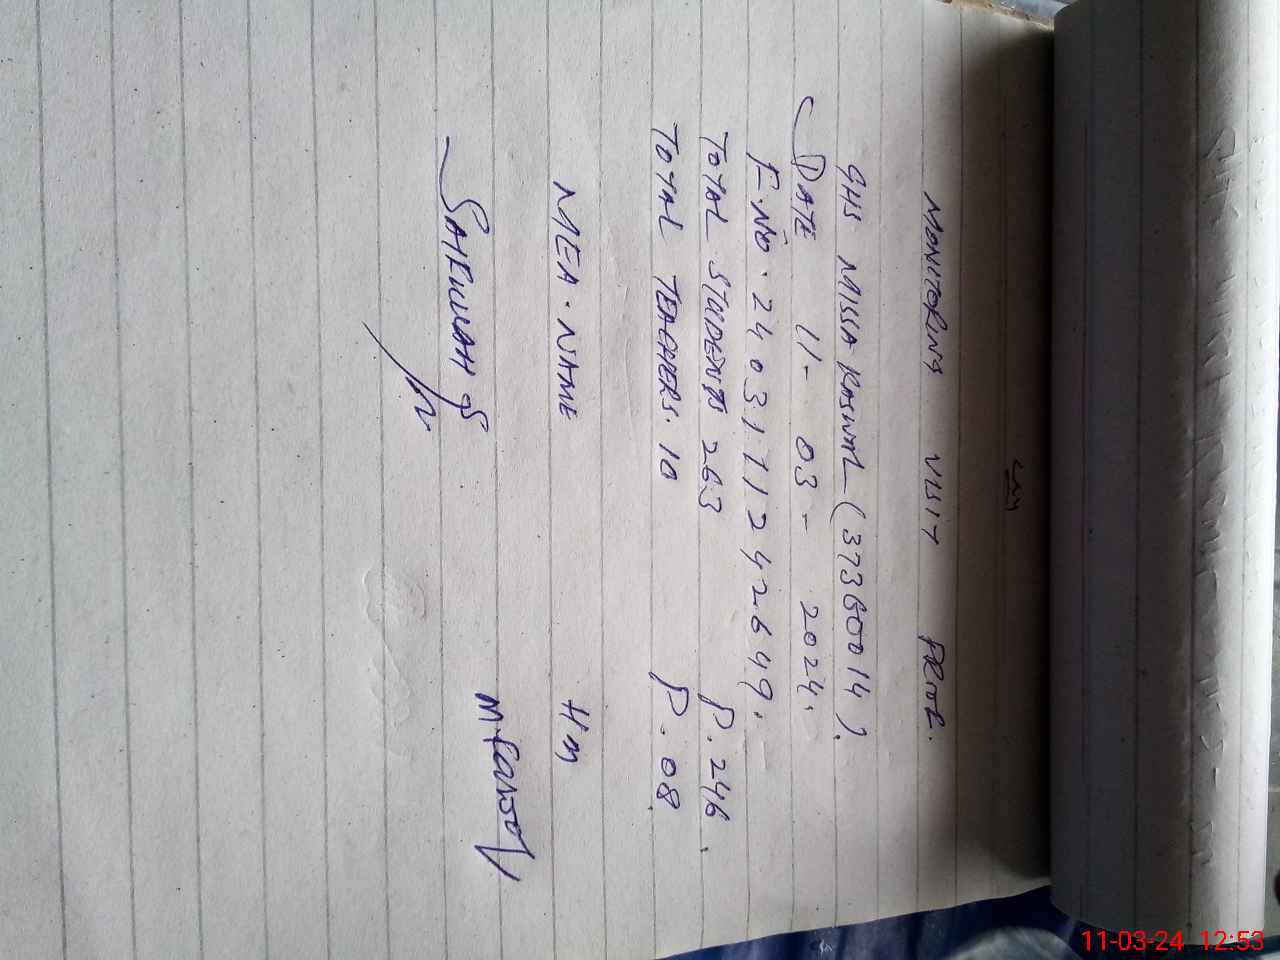 MONITORING VISIT PROOF.
GHS MISSA KASWAL (37360014).
DATE 11-03-2024.
F.NO. 2403111242649.
TOTAL STUDENTS 263 P. 246.
TOTAL TEACHERS. 10 P. 08
MEA. NAME HM
SAIFULLAH
11-03-24 12:53